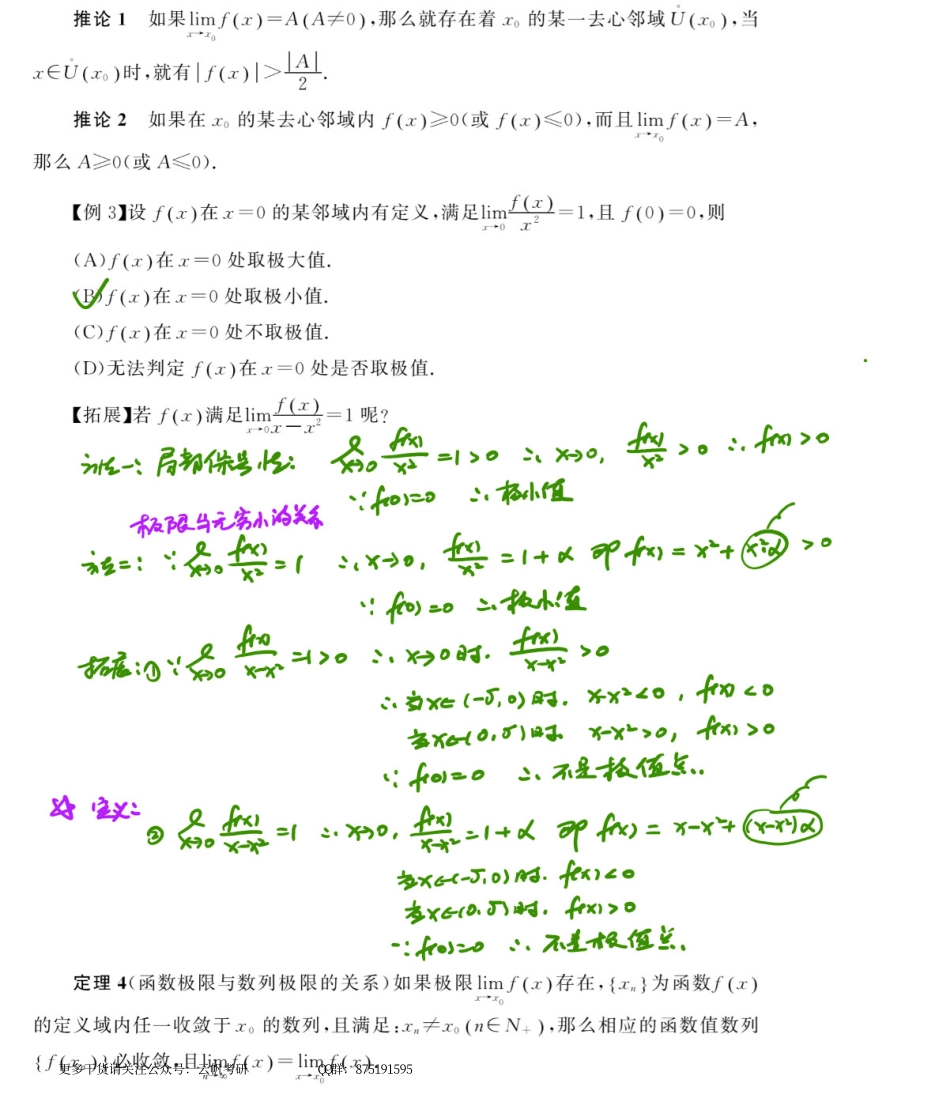 推论 1 如果lim f(x)=A(A≠0),那么就存在着 x₀ 的某一去心邻域Ů(x₀),当
x→x₀
x∈Ů(x₀)时,就有|f(x)|>|A|/2.
推论 2 如果在 x₀ 的某去心邻域内 f(x)⩾0(或 f(x)⩽0),而且lim f(x)=A,
x→x₀
那么 A⩾0(或 A⩽0).
【例 3】设 f(x)在 x=0 的某邻域内有定义,满足lim f(x)/x²=1,且 f(0)=0,则
x→0
(A)f(x)在 x=0 处取极大值.
(B)f(x)在 x=0 处取极小值.
(C)f(x)在 x=0 处不取极值.
(D)无法判定 f(x)在 x=0 处是否取极值.
【拓展】若 f(x)满足lim f(x)/(x-x²)=1 呢?
x→0
方法一: 局部保号性: lim f(x)/x² =1>0 ∴ x→0, f(x)/x² >0 ∴ f(x)>0
x→0
∵ f(0)=0 ∴ 极小值
极限与无穷小的关系
方法二: ∵ lim f(x)/x² =1 ∴ x→0, f(x)/x² =1+α 即 f(x)=x²+x²·α >0
x→0
∵ f(0)=0 ∴ 极小值
拓展:① ∵ lim f(x)/(x-x²) =1>0 ∴ x→0时. f(x)/(x-x²) >0
x→0
∴ 当x∈(-δ,0)时. x-x²<0, f(x)<0
当x∈(0,δ)时 x-x²>0, f(x)>0
∵ f(0)=0 ∴ 不是极值点..
定义:
② lim f(x)/(x-x²) =1 ∴ x→0, f(x)/(x-x²) =1+α 即 f(x)= x-x²+(x-x²)α
x→0
当x∈(-δ,0)时. f(x)<0
当x∈(0,δ)时. f(x)>0
∵ f(0)=0 ∴ 不是极值点.
定理 4(函数极限与数列极限的关系)如果极限lim f(x)存在,{xₙ}为函数f(x)
x→x₀
的定义域内任一收敛于 x₀ 的数列,且满足:xₙ≠x₀(n∈N₊),那么相应的函数值数列
{f(xₙ)}必收敛,且lim f(x)=lim f(x).
n→∞ x→x₀
更多干货请关注公众号:云帆考研 QQ群:875191595